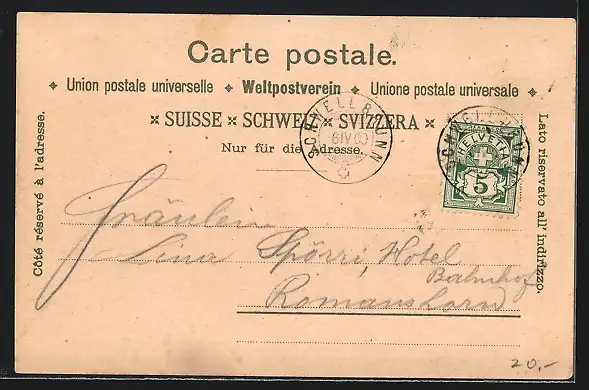 Carte postale.
Union postale universelle ✦ Weltpostverein ✦ Unione postale universale
SUISSE × SCHWEIZ × SVIZZERA
Nur für die Adresse.
Côté réservé à l'adresse.
Lato riservato all' indirizzo.
SCHNELLBRUNN
6 IV 00
HELVETIA
5
Fräulein
Lina Spörri, Hotel
Bahnhof
Romanshorn
20,-